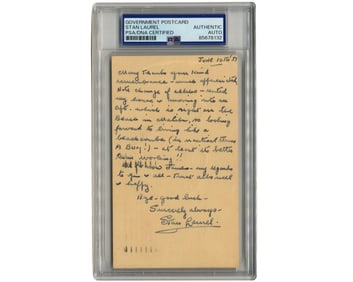 GOVERNMENT POSTCARD
STAN LAUREL
PSA/DNA CERTIFIED
AUTHENTIC
AUTO
85678132
Many Thanks your kind
remembrance - much appreciated.
Note change of address -
my house & moving into an
apt. which is right on the
Beach in so looking
forward to living like a
beachcomber (in
A Bum!) - at least it's better
than working!!
- my regards
to you & all - trust all's well
& happy.
Bye - good luck -
Sincerely always -
Stan Laurel -